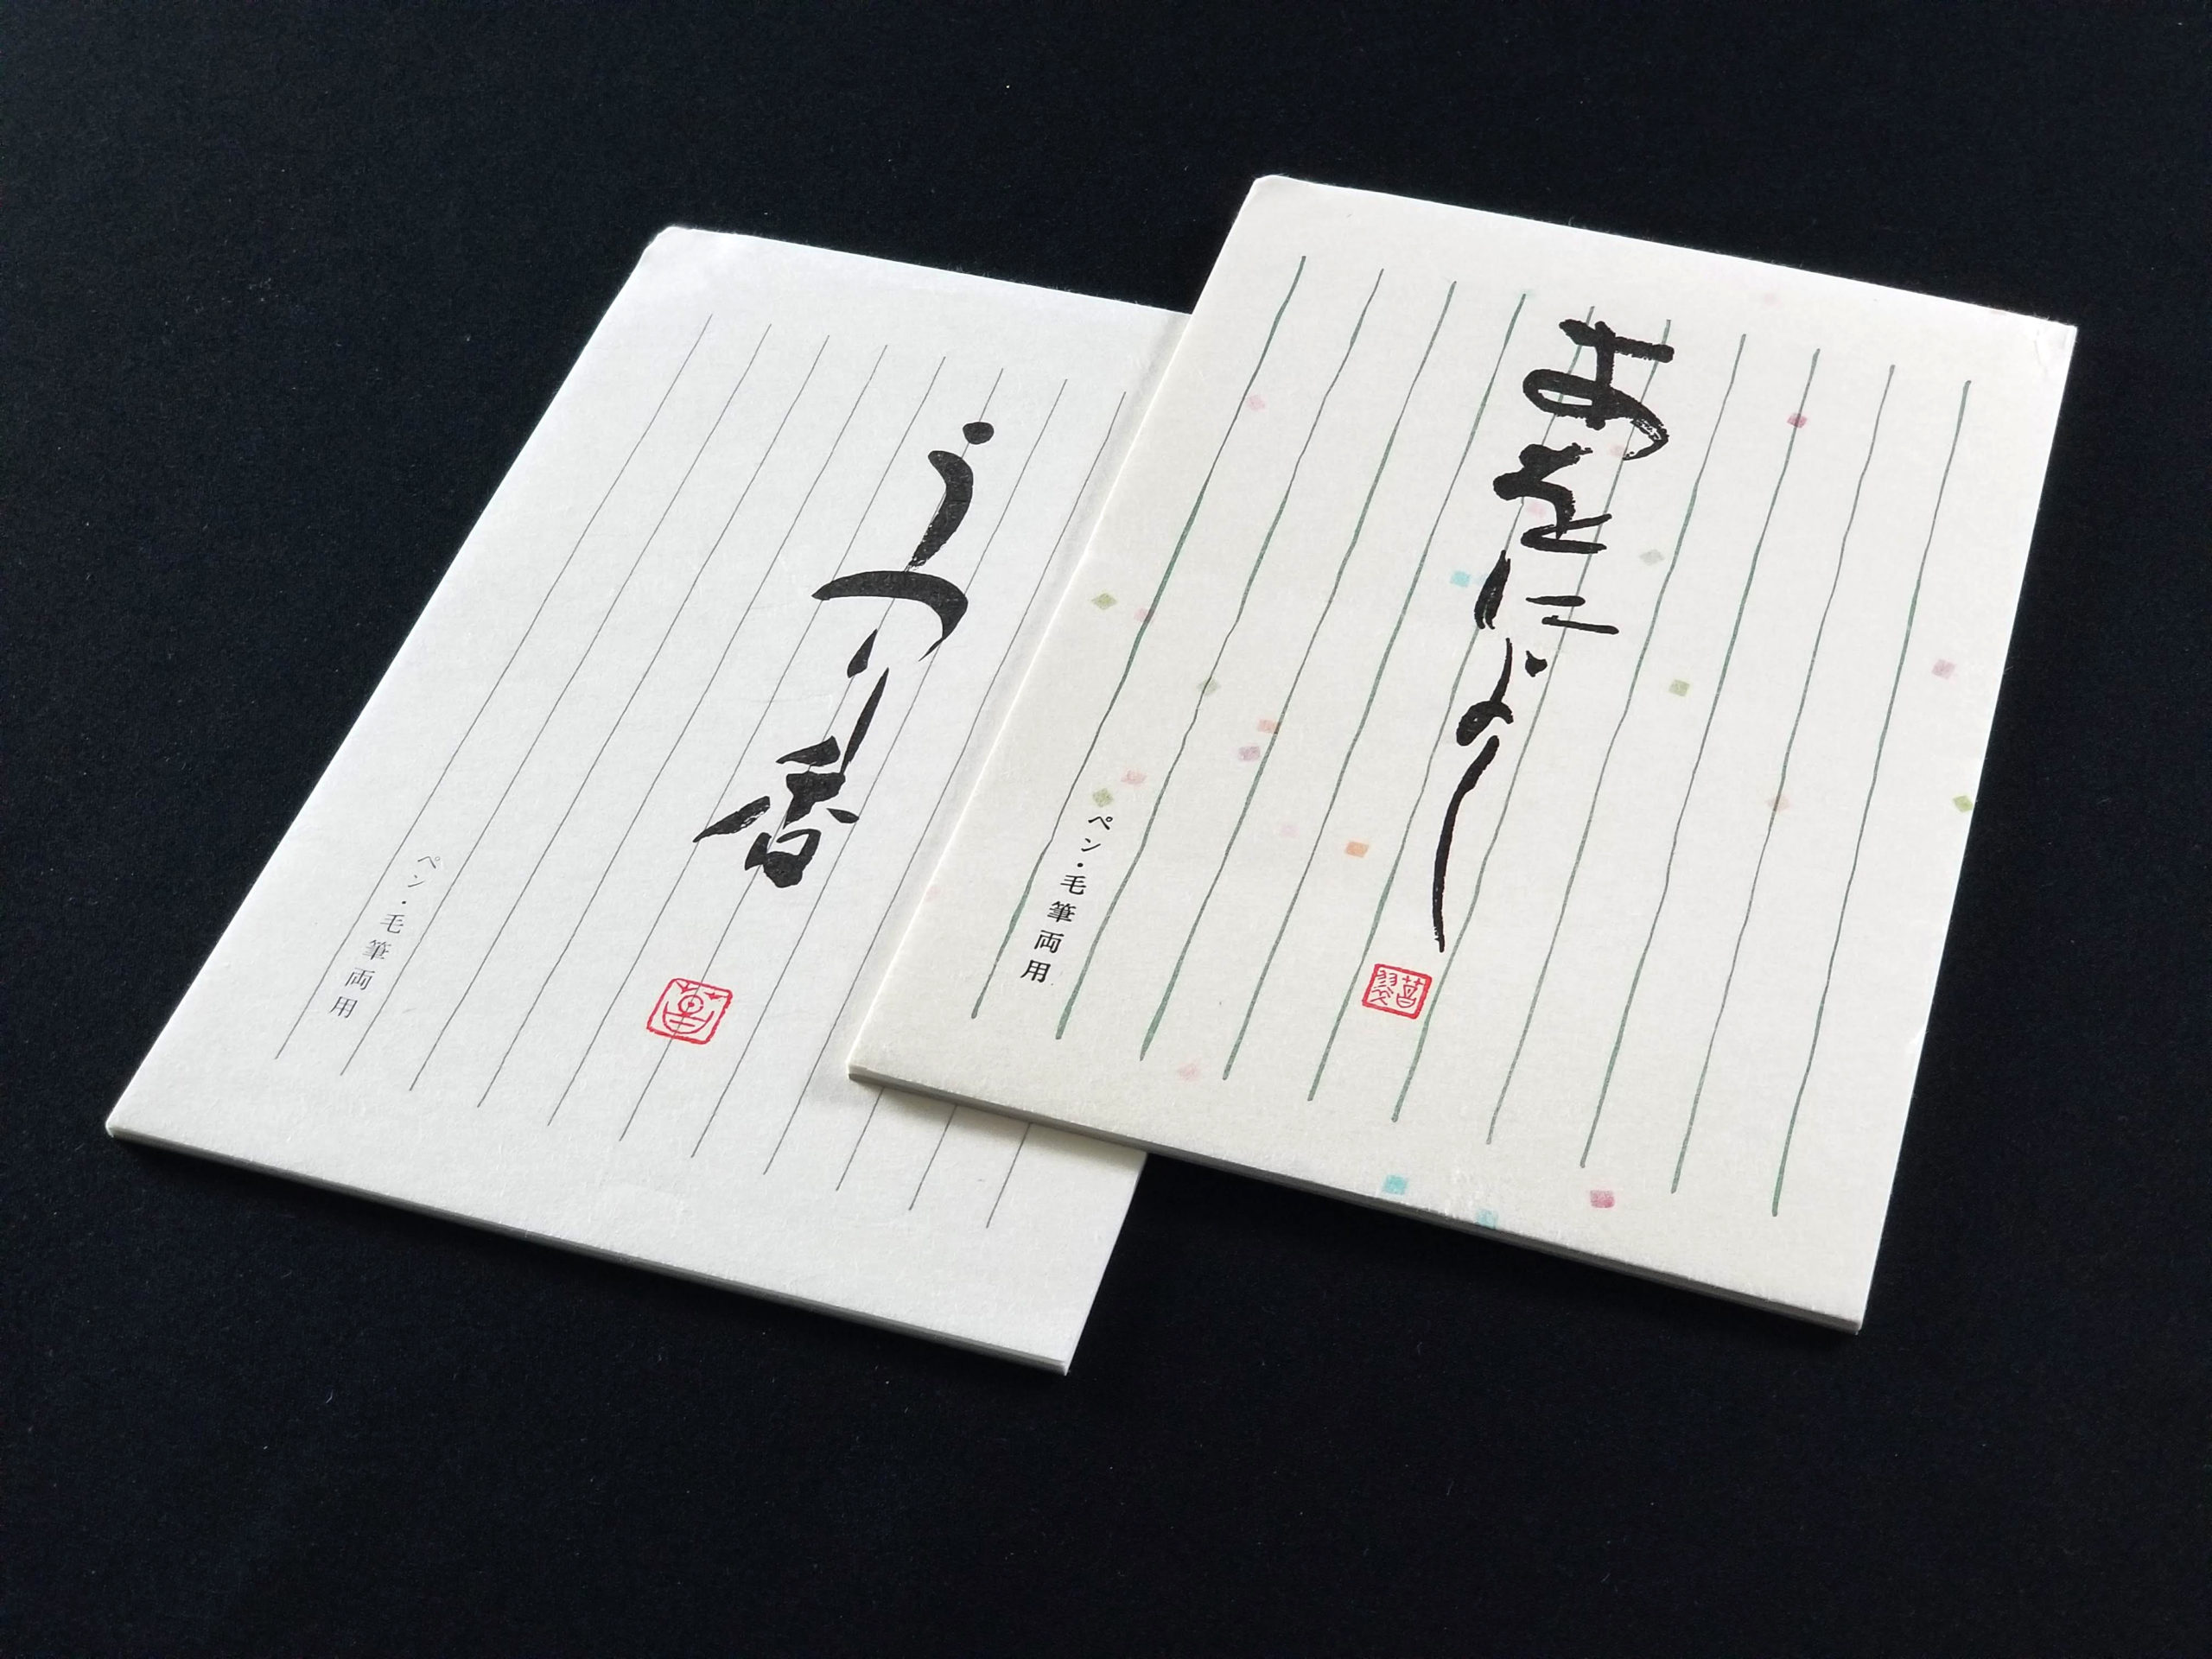 うつり香
ペン・毛筆両用
あをによし
ペン・毛筆両用